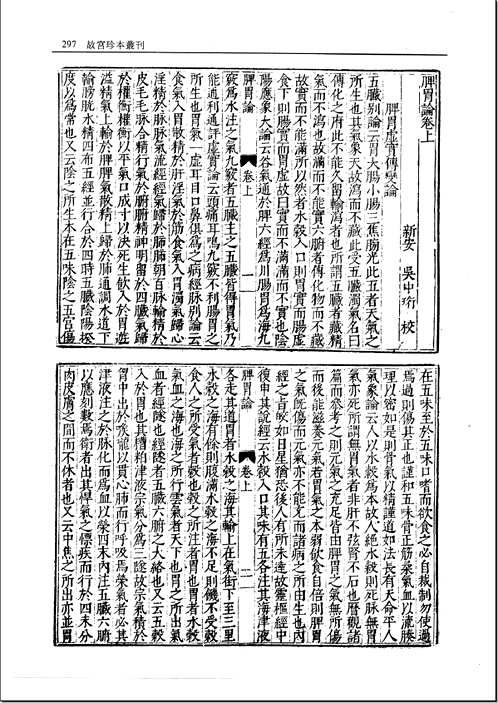 297 故宮珍本叢刊
脾胃論卷上
新安 吳中珩 校
脾胃虛實傳變論
五臟別論云胃大腸小腸三焦膀光此五者天氣之
所生也其氣象天故瀉而不藏此受五臟濁氣名曰
傳化之府此不能久留輸瀉者也所謂五臟者藏精
氣而不瀉也故滿而不能實六腑者傳化物而不藏
故實而不能滿所以然者水穀入口則胃實而腸虛
食下則腸實而胃虛故曰實而不滿滿而不實也陰
陽應象大論云谷氣通於脾六經為川腸胃為海九
脾胃論 卷上 一
竅為水注之氣九竅者五臟主之五臟皆得胃氣乃
能通利通評虛實論云頭痛耳鳴九竅不利腸胃之
所生也胃氣一虛耳目口鼻俱為之病經脉別論云
食氣入胃散精於肝淫氣於筋食氣入胃濁氣歸心
淫精於脉脉氣流經經氣歸於肺肺朝百脉輸精於
皮毛毛脉合精行氣於腑腑精神明留於四臟氣歸
於權衡權衡以平氣口成寸以決死生飲入於胃遊
溢精氣上輸於脾脾氣散精上歸於肺通調水道下
輸膀胱水精四布五經並行合於四時五臟陰陽揆
度以為常也又云陰之所生本在五味陰之五宮傷
在五味至於五味口嗜而欲食之必自裁制勿使過
焉過則傷其正也謹和五味骨正筋柔氣血以流腠
理以密如是則骨氣以精謹道如法長有天命平人
氣象論云人以水穀為本故人絕水穀則死脉無胃
氣亦死所謂無胃氣者非肝不弦腎不石也歷觀諸
篇而參考之則元氣之充足皆由脾胃之氣無所傷
而後能滋養元氣若胃氣之本弱飲食自倍則脾胃
之氣既傷而元氣亦不能充而諸病之所由生也內
經之旨皎如日星猶恐後人有所未達故靈樞經中
復申其說經云水穀入口其味有五各注其海津液
脾胃論 卷上 二
各走其道胃者水穀之海其輸上在氣街下至三里
水穀之海有餘則腹滿水穀之海不足則饑不受穀
食人之所受氣者穀也穀之所注者胃也胃者水穀
氣血之海也海之所行雲氣者天下也胃之所出氣
血者經隧也經隧者五臟六腑之大絡也又云五穀
入於胃也其糟粕津液宗氣分為三隧故宗氣積於
胷中出於喉嚨以貫心肺而行呼吸焉榮氣者必其
津液注之於脉化而為血以榮四末內注五臟六腑
以應刻數焉衛者出其悍氣之慓疾而行於四末分
肉皮膚之間而不休者也又云中焦之所出亦並胃